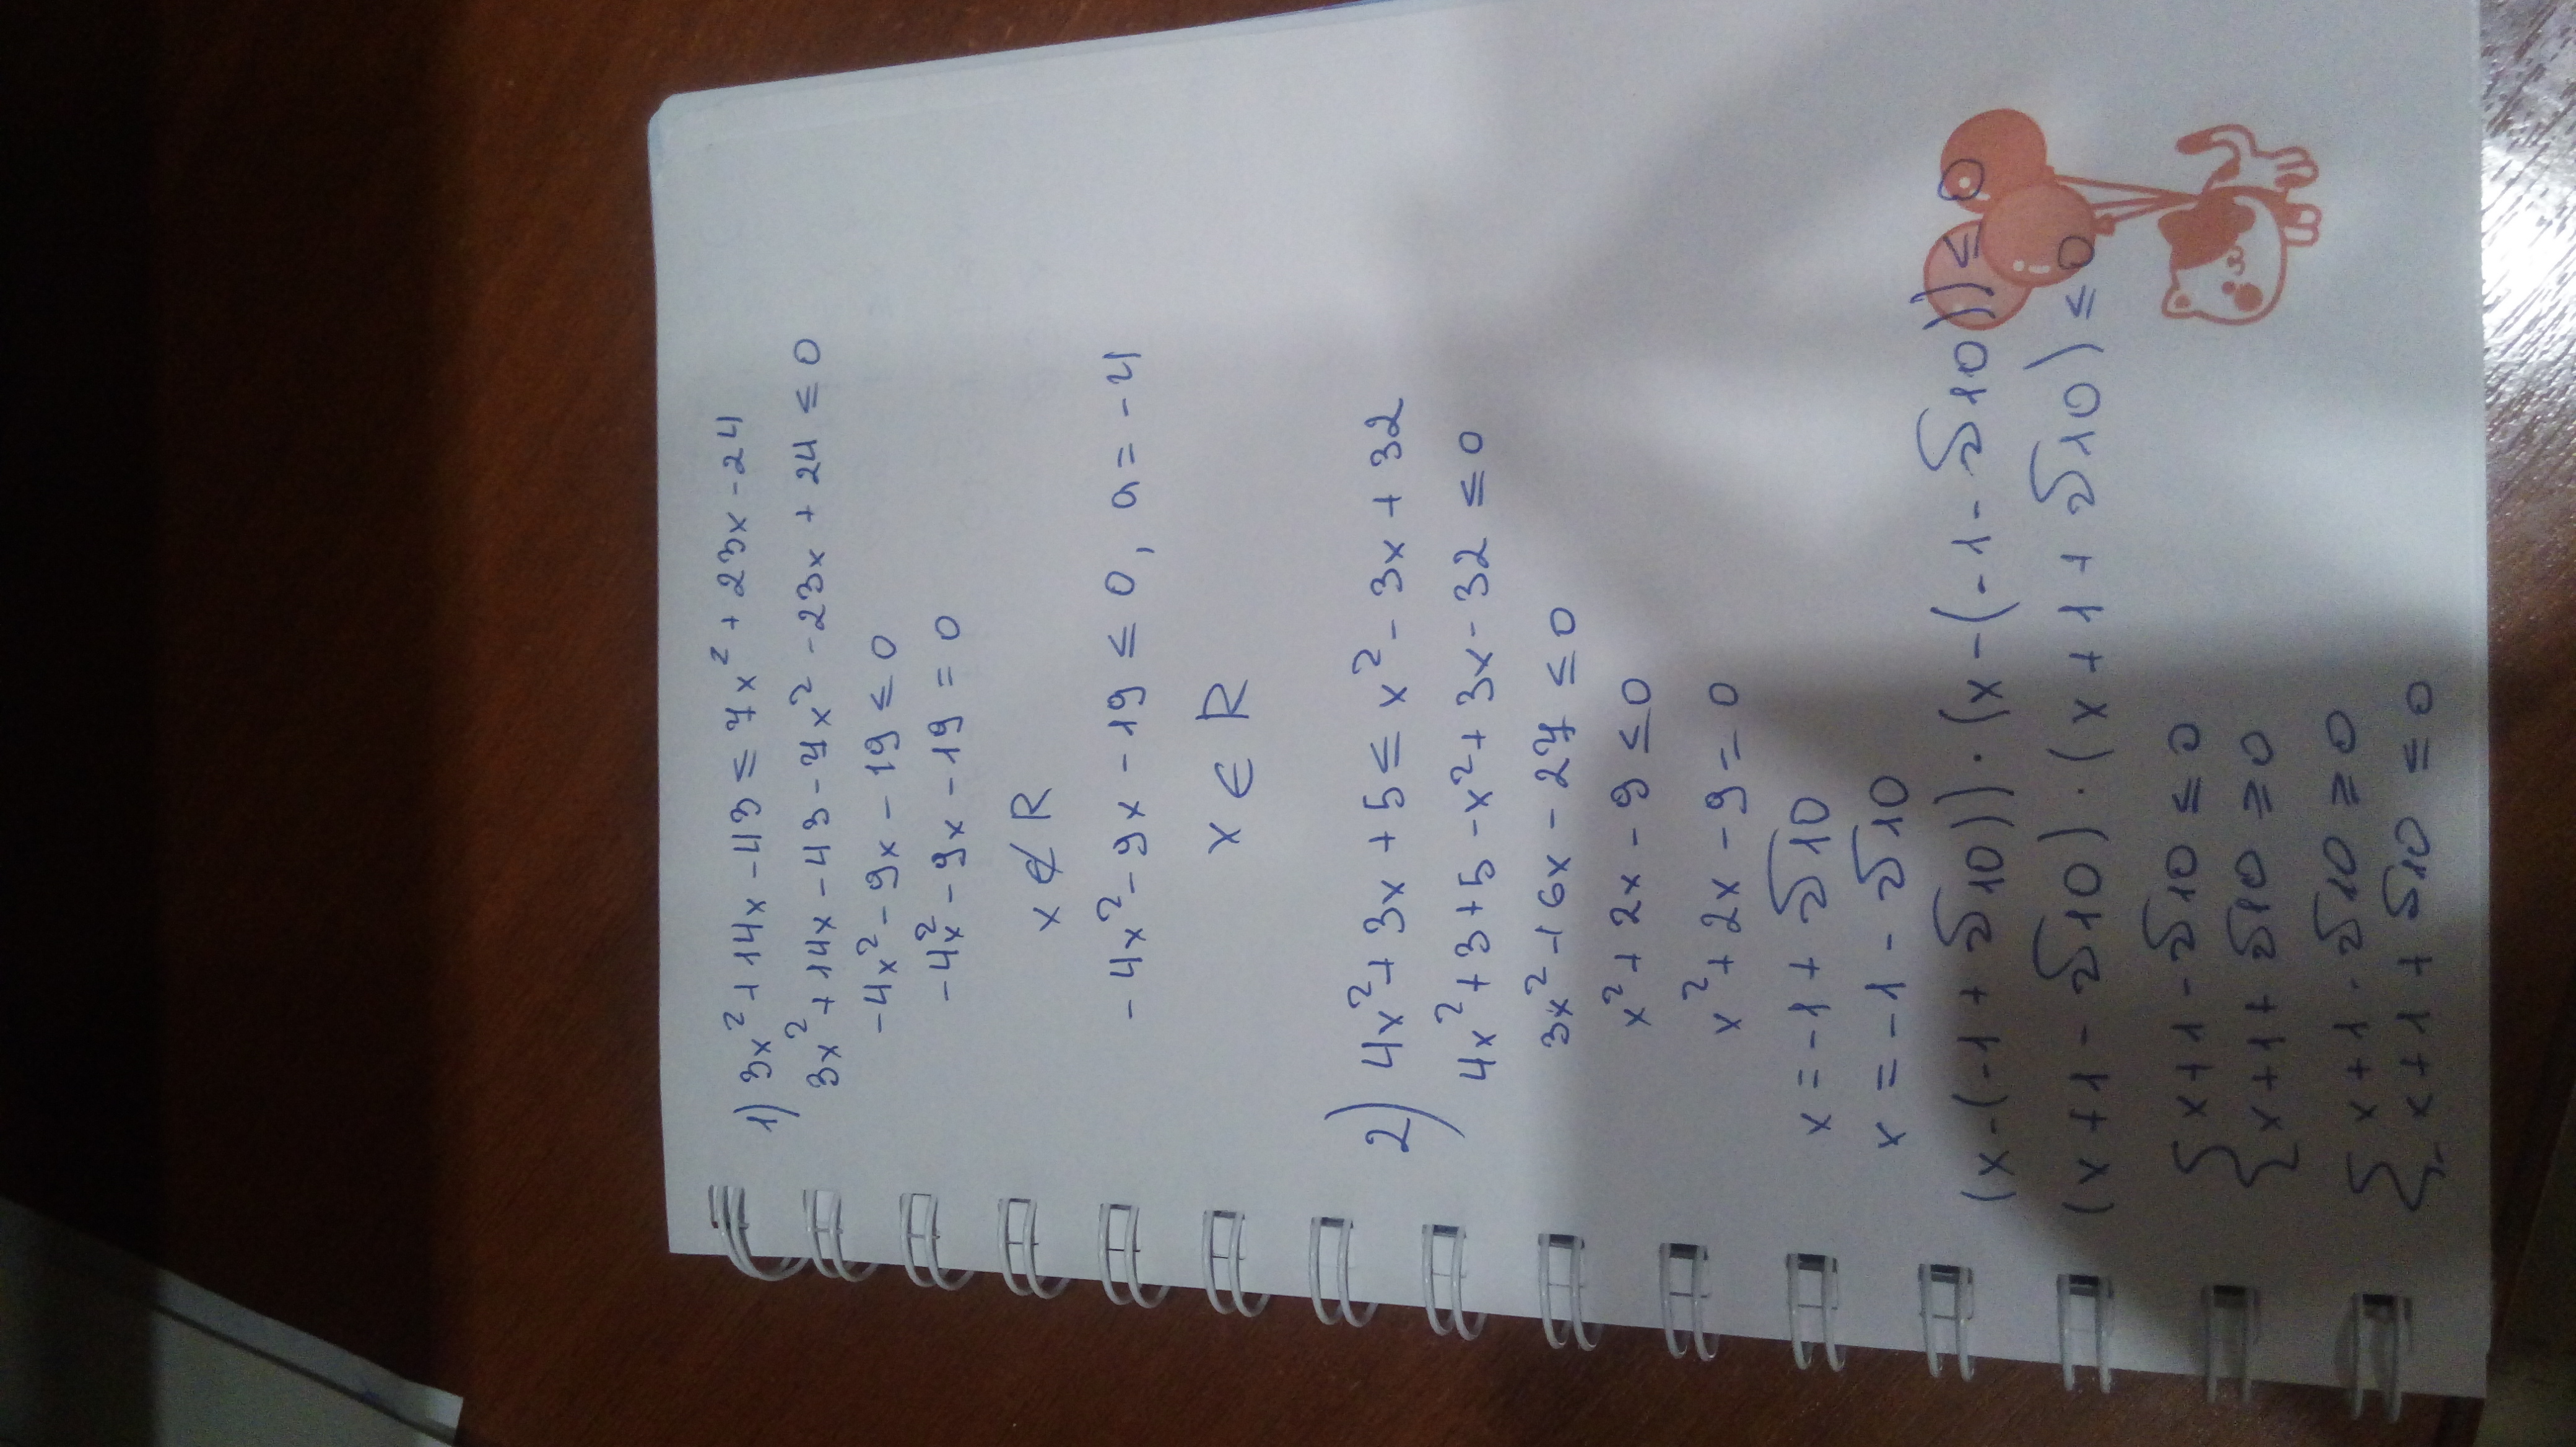 1) 3x² + 14x - 43 ≤ 7x² + 23x - 24
3x² + 14x - 43 - 7x² - 23x + 24 ≤ 0
-4x² - 9x - 19 ≤ 0
-4x² - 9x - 19 = 0
x ∉ R
-4x² - 9x - 19 ≤ 0, a = -4
x ∈ R
2) 4x² + 3x + 5 ≤ x² - 3x + 32
4x² + 3 + 5 - x² + 3x - 32 ≤ 0
3x² + 6x - 27 ≤ 0
x² + 2x - 9 ≤ 0
x² + 2x - 9 = 0
x = -1 + √10
x = -1 - √10
(x - (-1 + √10)) · (x - (-1 - √10)) ≤ 0
(x + 1 - √10) · (x + 1 + √10) ≤ 0
{ x + 1 - √10 ≤ 0
{ x + 1 + √10 ≥ 0
{ x + 1 - √10 ≥ 0
{ x + 1 + √10 ≤ 0